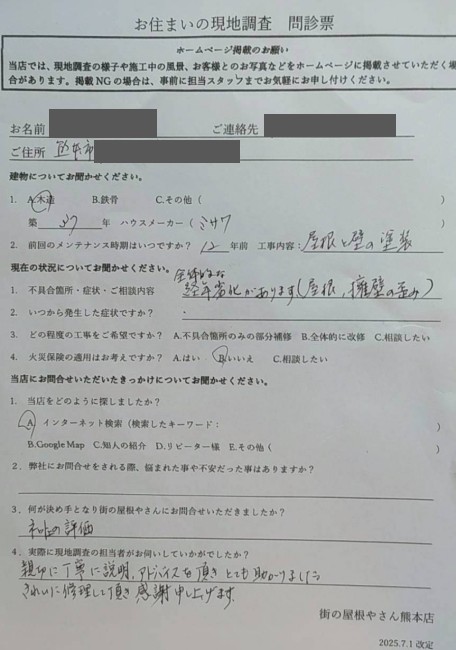 お住まいの現地調査 問診票
ホームページ掲載のお願い
当店では、現地調査の様子や施工中の風景、お客様とのお写真などをホームページに掲載させていただく場
合があります。掲載NGの場合は、事前に担当スタッフまでお気軽にお申し付けください。
お名前 ご連絡先
ご住所 熊本市
建物についてお聞かせください。
1. A.木造 B.鉄骨 C.その他( )
築 37 年 ハウスメーカー( ミサワ )
2. 前回のメンテナンス時期はいつですか? 12 年前 工事内容: 屋根と壁の塗装
現在の状況についてお聞かせください。
全体的な
1. 不具合箇所・症状・ご相談内容 経年劣化があります(屋根、擁壁の歪み)
2. いつから発生した症状ですか? ・
3. どの程度の工事をご希望ですか? A.不具合箇所のみの部分補修 B.全体的に改修 C.相談したい
4. 火災保険の適用はお考えですか? A.はい B.いいえ C.相談したい
当店にお問合せいただいたきっかけについてお聞かせください。
1. 当店をどのように探しましたか?
A. インターネット検索(検索したキーワード: )
B.Google Map C.知人の紹介 D.リピーター様 E.その他( )
2. 弊社にお問合せをされる際、悩まれた事や不安だった事はありますか?
3. 何が決め手となり街の屋根やさんにお問合せいただきましたか?
ネットの評価
4. 実際に現地調査の担当者がお伺いしていかがでしたか?
親切に丁寧に説明、アドバイスを頂き とても助かりました
きれいに修理して頂き 感謝申し上げます。
街の屋根やさん熊本店
2025.7.1 改定